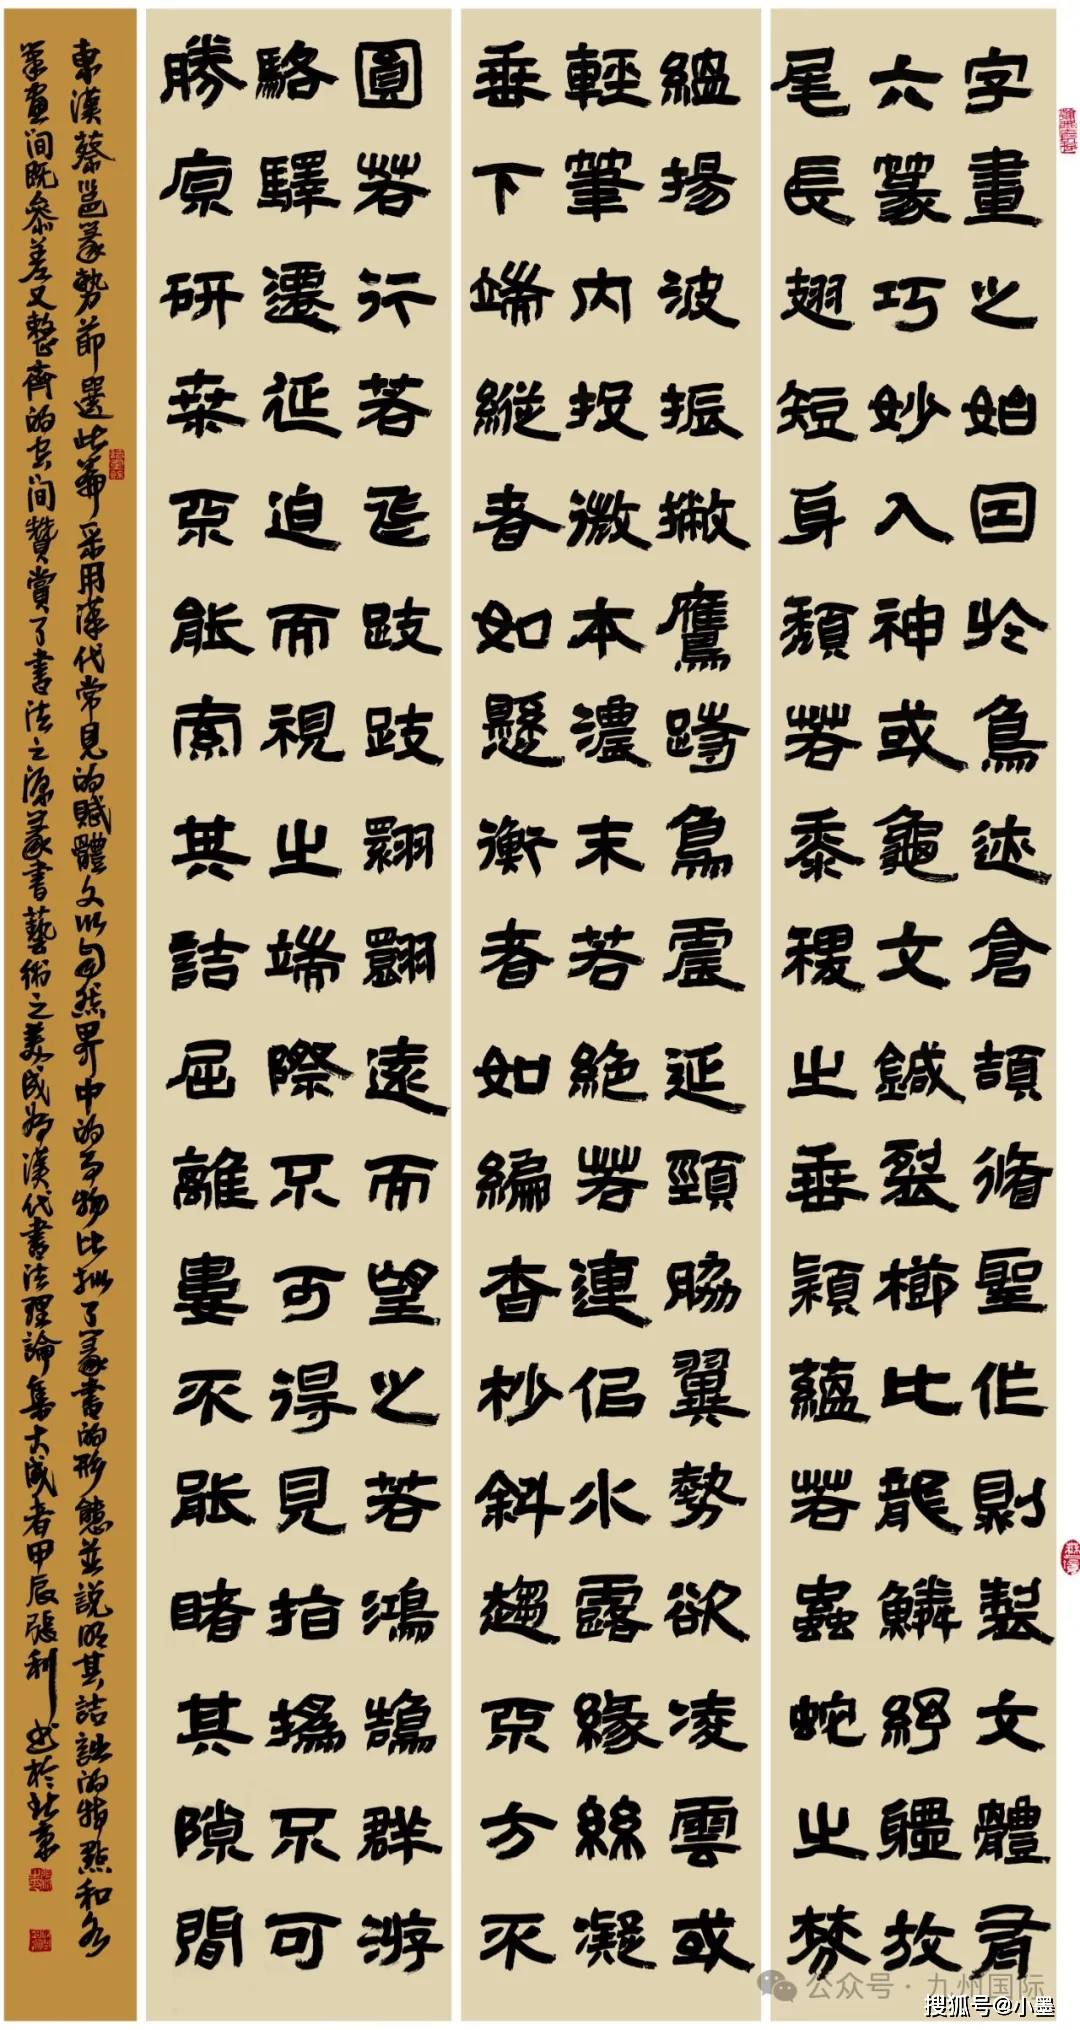 字畫之始因於鳥迹倉頡循聖作則製文體有
六篆巧妙入神或龜文鍼裂櫛比龍鱗紓體放
尾長翅短身頹若黍稷之垂穎蘊若蟲蛇之棼
縕揚波振撇鷹跱鳥震延頸脇翼勢欲凌雲或
輕筆內投微本濃末若絶若連似水露緣絲凝
垂下端縱者如懸衡者如編杳杪斜趨不方不
圓若行若飛跂跂翾翾遠而望之若鴻鵠群游
駱驛遷延迫而視之端際不可得見指撝不可
勝原研桑不能索其詰屈離婁不能睹其隙間
東漢蔡邕篆勢節選此篇采用漢代常見的賦體文以自然界中的事物比擬了篆書的形態並説明其詰詘的特點和各
筆畫間既參差又整齊的空間贊賞了書法之源篆書藝術之美成爲漢代書法理論集大成者甲辰張利書於北京
公众号·九州国际
搜狐号@小墨